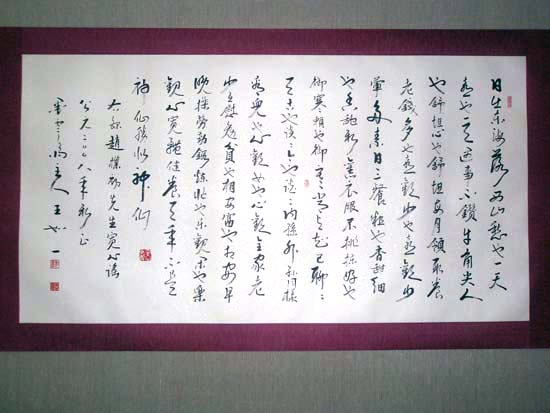 日出东海落西山愁也一天
喜也一天遇事不鑽牛角尖人
也舒坦心也舒坦每月領取養
老錢多也喜歡少也喜歡少
葷多素日三餐粗也香甜細
也香甜新舊衣服不挑揀好也
御寒賴也御寒常與知己聊聊
天古也谈谈今也谈谈内孫外孫同樣
看待兒也心歡女也心歡全家老
少互慰勉貧也相安富也相安早
晚操勞勤鍛煉忙也乐觀閑也樂
觀心寬體健養天年不是
神仙勝似神仙
右錄趙樸初先生寬心謠
公元二〇〇八年秋月
主人王